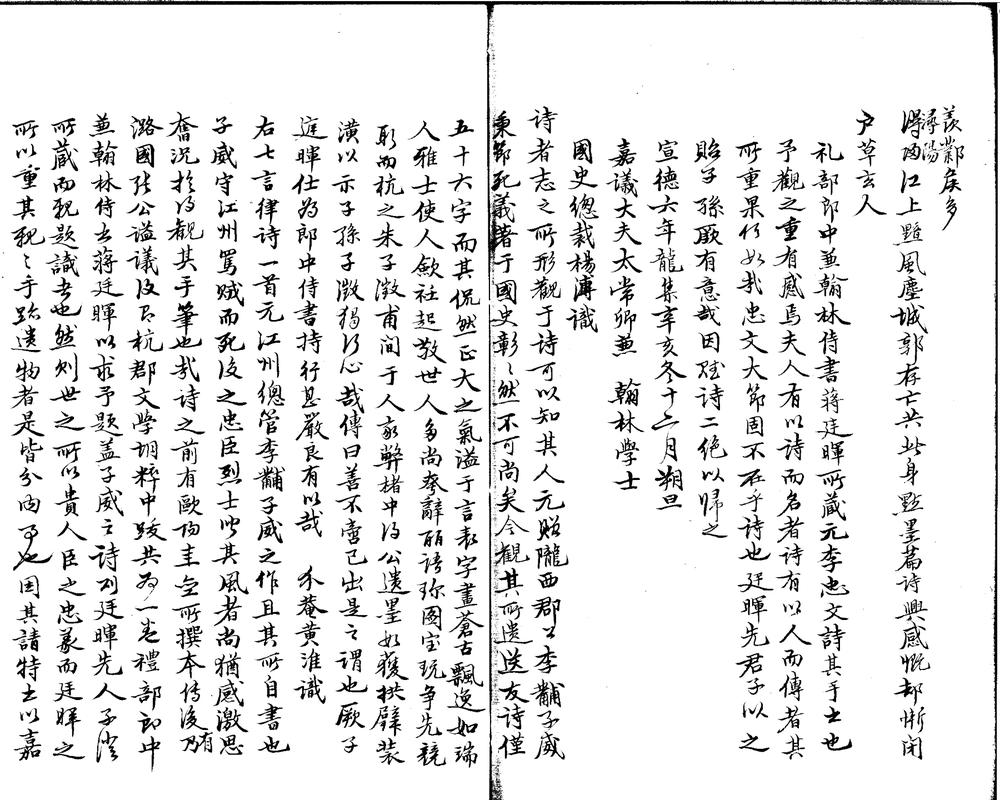 羨鄴侯多
潯陽江上黯風塵城郭存亡共此身點墨篇詩興感慨却慚閉
户草玄人
礼部郎中兼翰林侍書蔣廷暉所蔵元李忠文詩其手士也
予觀之重有感焉夫人有以詩而名者詩有以人而傳者其
所重果何如哉忠文大節固不在乎詩也廷暉先君子以之
貽子孫厥有意哉因賦詩二绝以歸之
宣德六年龍集辛亥冬十二月朔旦
嘉議大夫太常卿兼 翰林學士
國史總裁楊溥識
詩者志之所形觀于詩可以知其人元贈隴西郡公李黼子威
秉節死義著于國史彰〻然不可尚矣今觀其所遺送友詩僅
五十六字而其侃然正大之氣溢于言表字畫蒼古飄逸如瑞
人雅士使人歛衽起敬世人多尚奪辭丽语珎圖宝玩争先競
取而杭之朱子澂甫间于人家弊楮中得公遺墨如獲拱璧装
潢以示子孫子澂獨何心哉傳曰善不啻己出是之谓也厥子
廷暉仕為郎中侍書持行甚嚴良有以哉 介菴黄淮識
右七言律诗一首元江州總管李黼子威之作且其所自書也
子威守江州罵贼而死後之忠臣烈士心其風者尚猶感激思
奮况於得觀其手筆也哉诗之前有歐陽圭齋所撰本傳後乃有
潞國張公谥議後又杭郡文學胡粹中跋共為一卷禮部郎中
兼翰林侍書蔣廷暉以求予題盖子威之詩乃廷暉先人子澄
所蔵而親題識者也然则世之所以貴人臣之忠義而廷暉之
所以重其親〻手跡遺物者是皆分内事也因其請特書以嘉